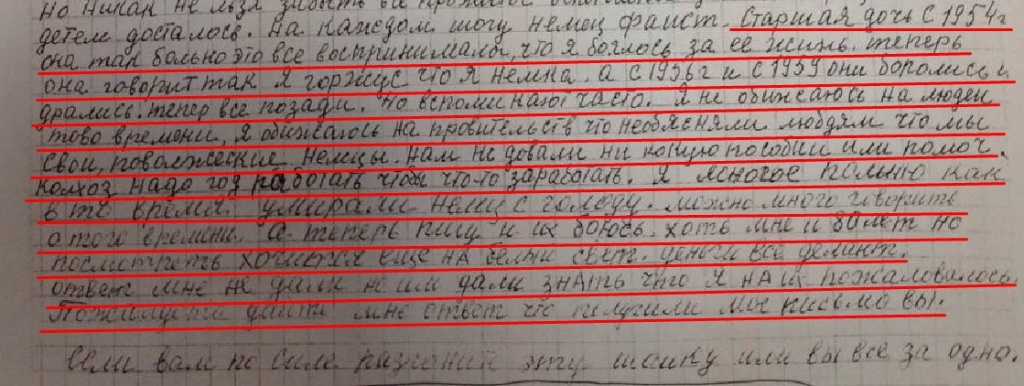 но никак не льзя забыть все прошлое
детем досталось. На каждом шогу немец фашист. Старшая дочь с 1954г
она так больно это все воспринимала, что я боялось за ее жизнь. теперь
она говорит так я горжус что я немка. а с 1956г и с 1959 они боролись и
дрались. тепер все позади. но вспоминают часто. Я не обижаюсь на людеи
тово времени, я обижаюсь на провительств что необясняли людям что мы
свои, поволжеские немцы. нам не довали ни кокую пособии или помоч.
колхоз надо год работать чтобы что-то заработать. Я многое помню как
в то время умирали немц с голоду. можно много говорить
о того времени. а теперь пишу и их боюсь. хоть мне и 80 лет но
посмитреть хочится еще на белы свет. деньги все делают.
ответ мне не дали но им дали знать что я на их пожаловалось.
Пожалуста дайте мне ответ что получили мое письмо вы.
Если вам по силе разгонит эту шайку или вы все за одно.